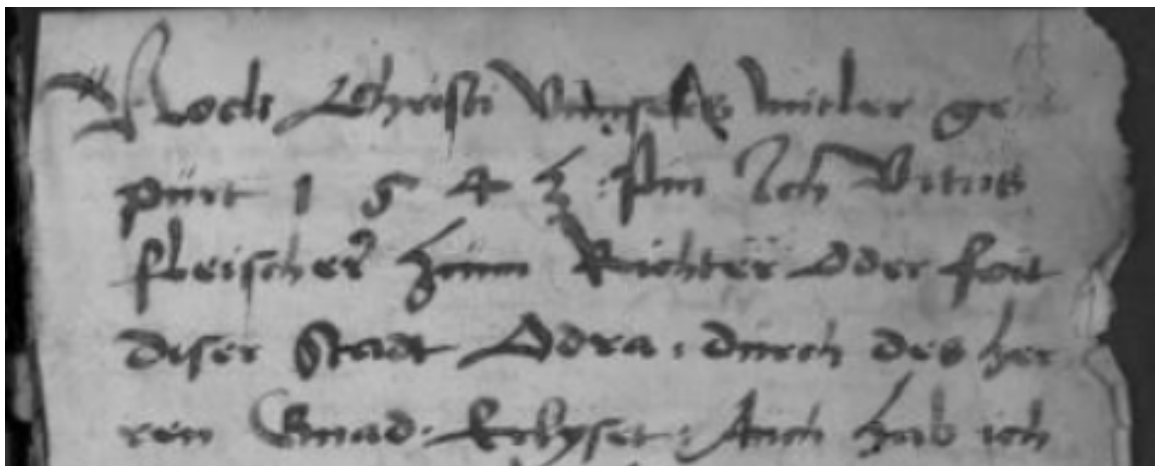 Noch Christi Vnnsers mitler ge
pürt 1 5 4 3 : Pin Ich Vitus
fleischer zům Richter Oder foit
diser Stadt Odra : dürch des her
ren Gnad : Erkyset : Auch hab ich